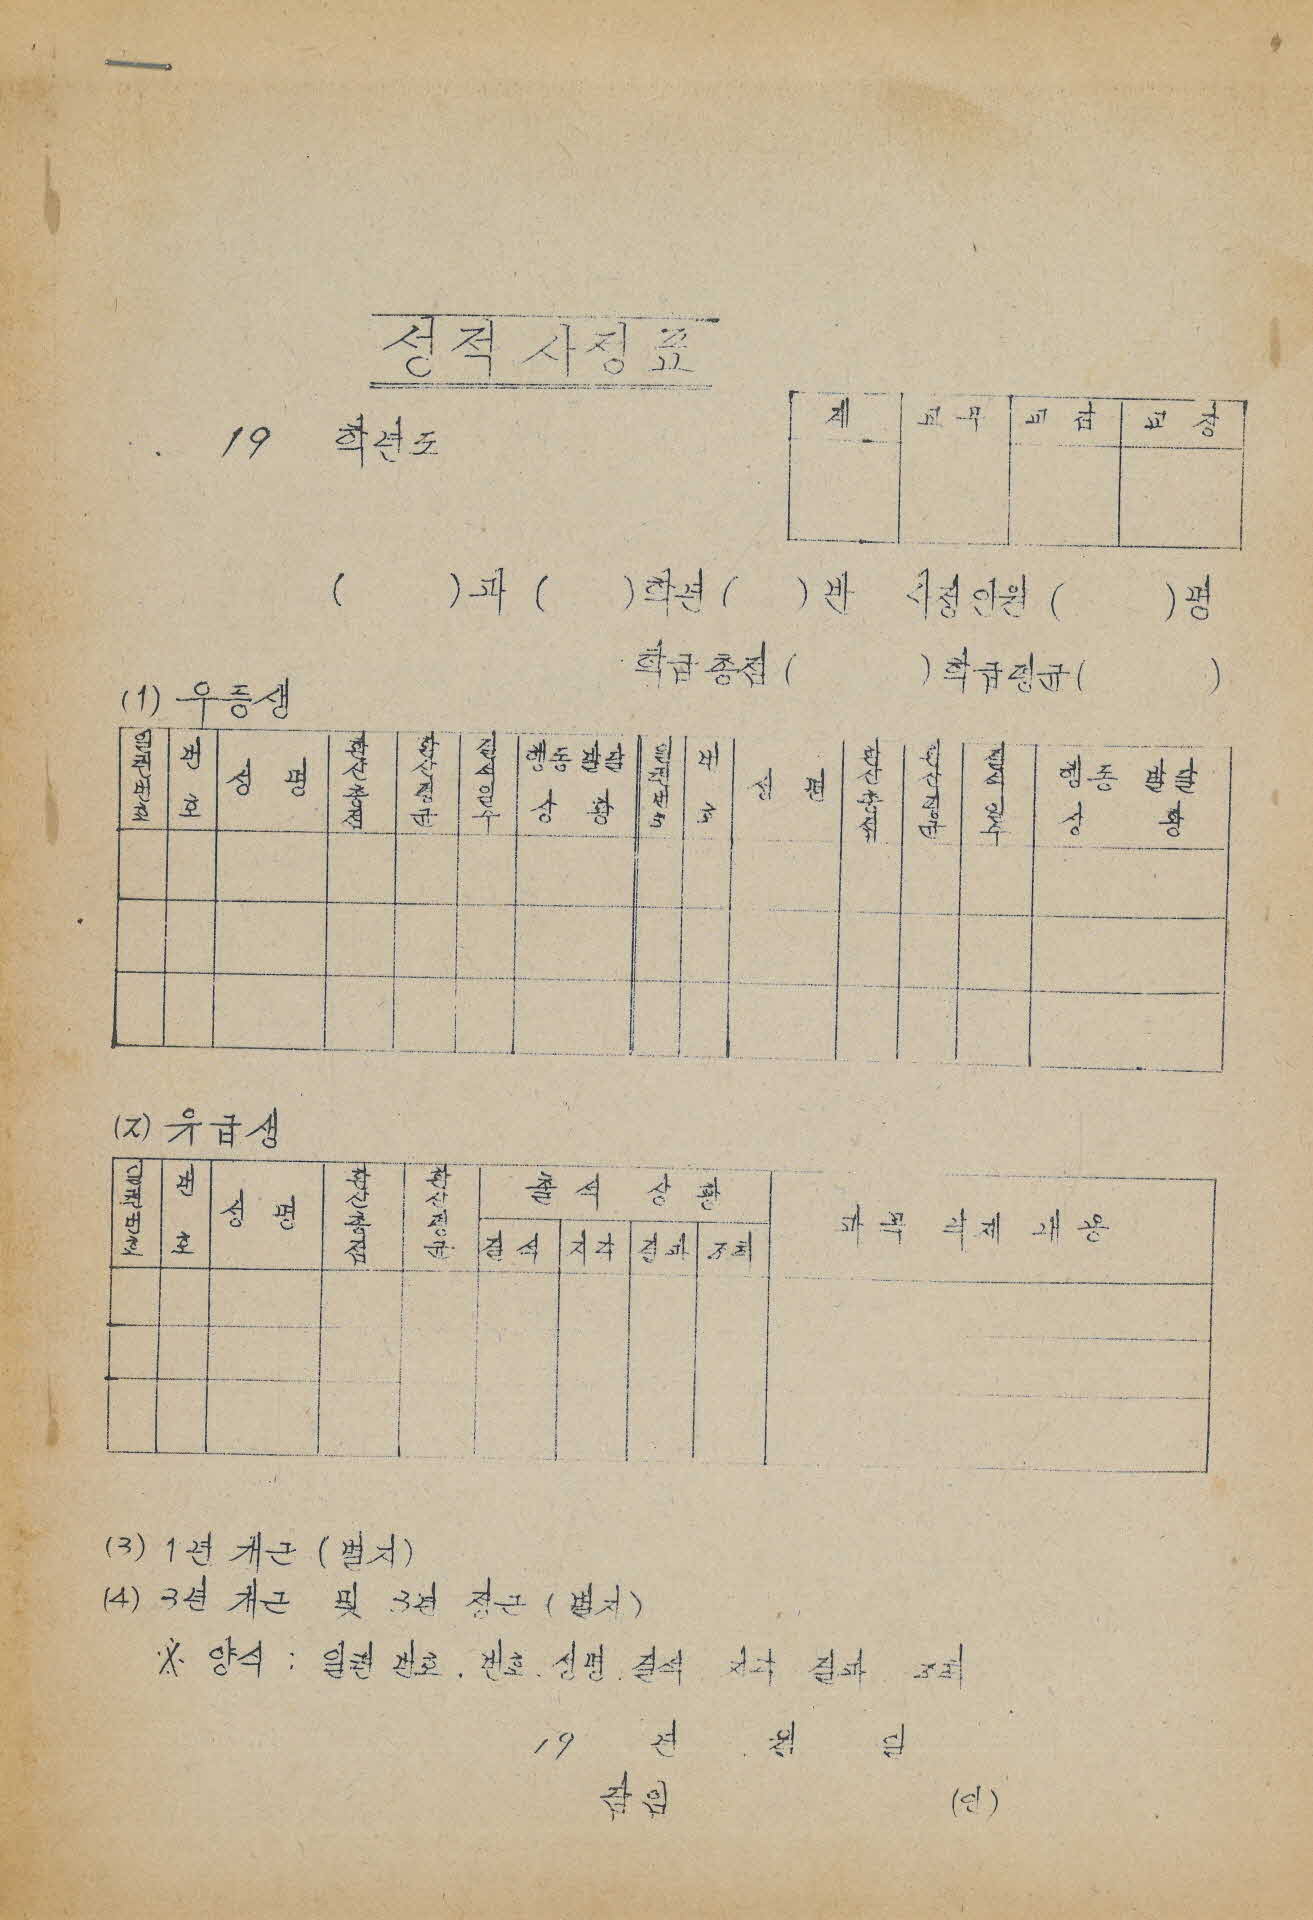 성적 사정표
계 교무 교감 교장
19 학년도
( )과 ( )학년 ( )반 사정인원 ( )명
학급총점 ( ) 학급평균 ( )
(1) 우등생
일련번호 번호 성명 환산총점 환산평균 결석일수 행동발달상황 일련번호 번호 성명 환산총점 환산평균 결석일수 행동발달상황
(2) 유급생
일련번호 번호 성명 환산총점 환산평균 출석상황 과목 낙제 내용
결석 지각 결과 조퇴
(3) 1년 개근 (별지)
(4) 3년 개근 및 3년 정근 (별지)
※ 양식 : 일련번호. 번호. 성명. 결석 지각 결과 조퇴
19 년 월 일
담임 (인)